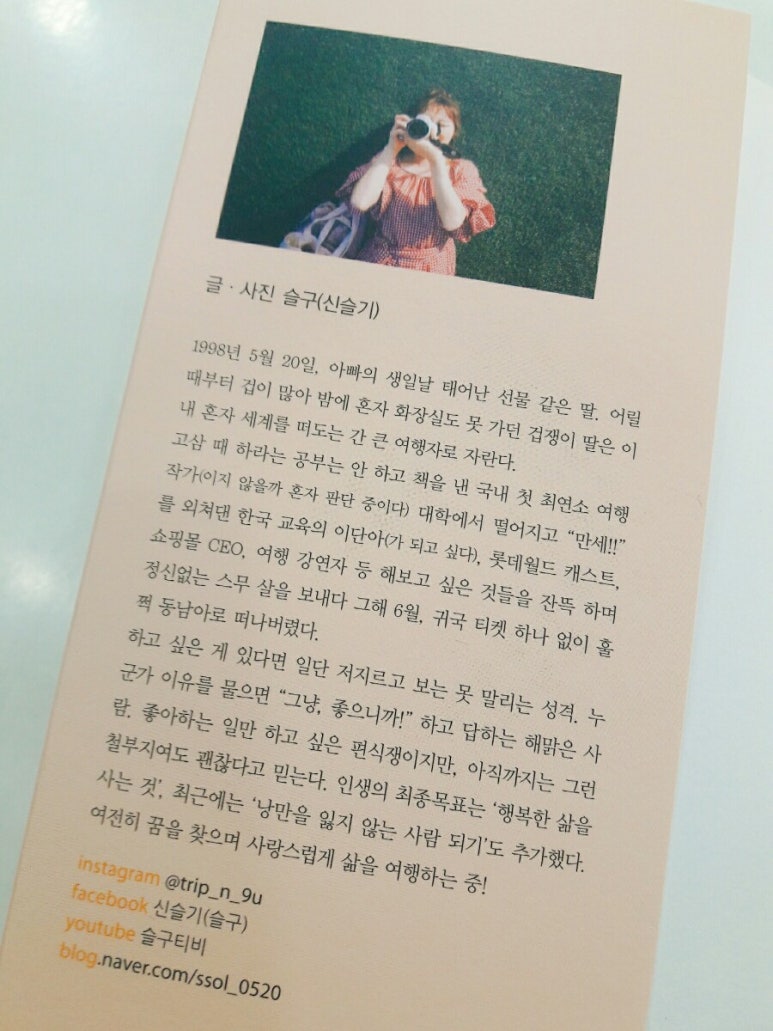 글 · 사진 슬구(신슬기)
1998년 5월 20일, 아빠의 생일날 태어난 선물 같은 딸. 어릴
때부터 겁이 많아 밤에 혼자 화장실도 못 가던 겁쟁이 딸은 이
내 혼자 세계를 떠도는 간 큰 여행자로 자란다.
고삼 때 하라는 공부는 안 하고 책을 낸 국내 첫 최연소 여행
작가(이지 않을까 혼자 판단 중이다) 대학에서 떨어지고 “만세!!”
를 외쳐댄 한국 교육의 이단아(가 되고 싶다), 롯데월드 캐스트,
쇼핑몰 CEO, 여행 강연자 등 해보고 싶은 것들을 잔뜩 하며
정신없는 스무 살을 보내다 그해 6월, 귀국 티켓 하나 없이 훌
쩍 동남아로 떠나버렸다.
하고 싶은 게 있다면 일단 저지르고 보는 못 말리는 성격. 누
군가 이유를 물으면 “그냥, 좋으니까!” 하고 답하는 해맑은 사
람. 좋아하는 일만 하고 싶은 편식쟁이지만, 아직까지는 그런
철부지여도 괜찮다고 믿는다. 인생의 최종목표는 ‘행복한 삶을
사는 것’, 최근에는 ‘낭만을 잃지 않는 사람 되기’도 추가했다.
여전히 꿈을 찾으며 사랑스럽게 삶을 여행하는 중!
instagram @trip_n_9u
facebook 신슬기(슬구)
youtube 슬구티비
blog.naver.com/ssol_0520